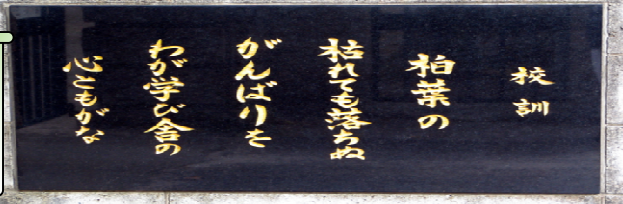 校訓
柏葉の
枯れても落ちぬ
がんばりを
わが学び舎の
心ともがな